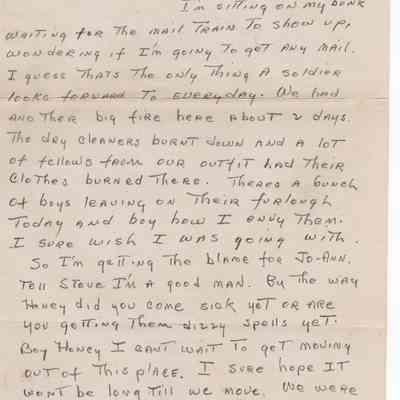 I'm sitting on my bunk
waiting for the mail train to show up,
wondering if I'm going to get any mail.
I guess thats the only thing a soldier
looks forward to everyday. We had
another big fire here about 2 days.
The dry cleaners burnt down and a lot
of fellows from our outfit had their
clothes burned there. Theres a bunch
of boys leaving on their furlough
today and boy how I envy them.
I sure wish I was going with.
So I'm getting the blame for Jo-Ann.
Tell Steve I'm a good man. By the way
Honey did you come sick yet or are
you getting them dizzy spells yet.
Boy Honey I cant wait to get moving
out of this place. I sure hope it
wont be long till we move. We were